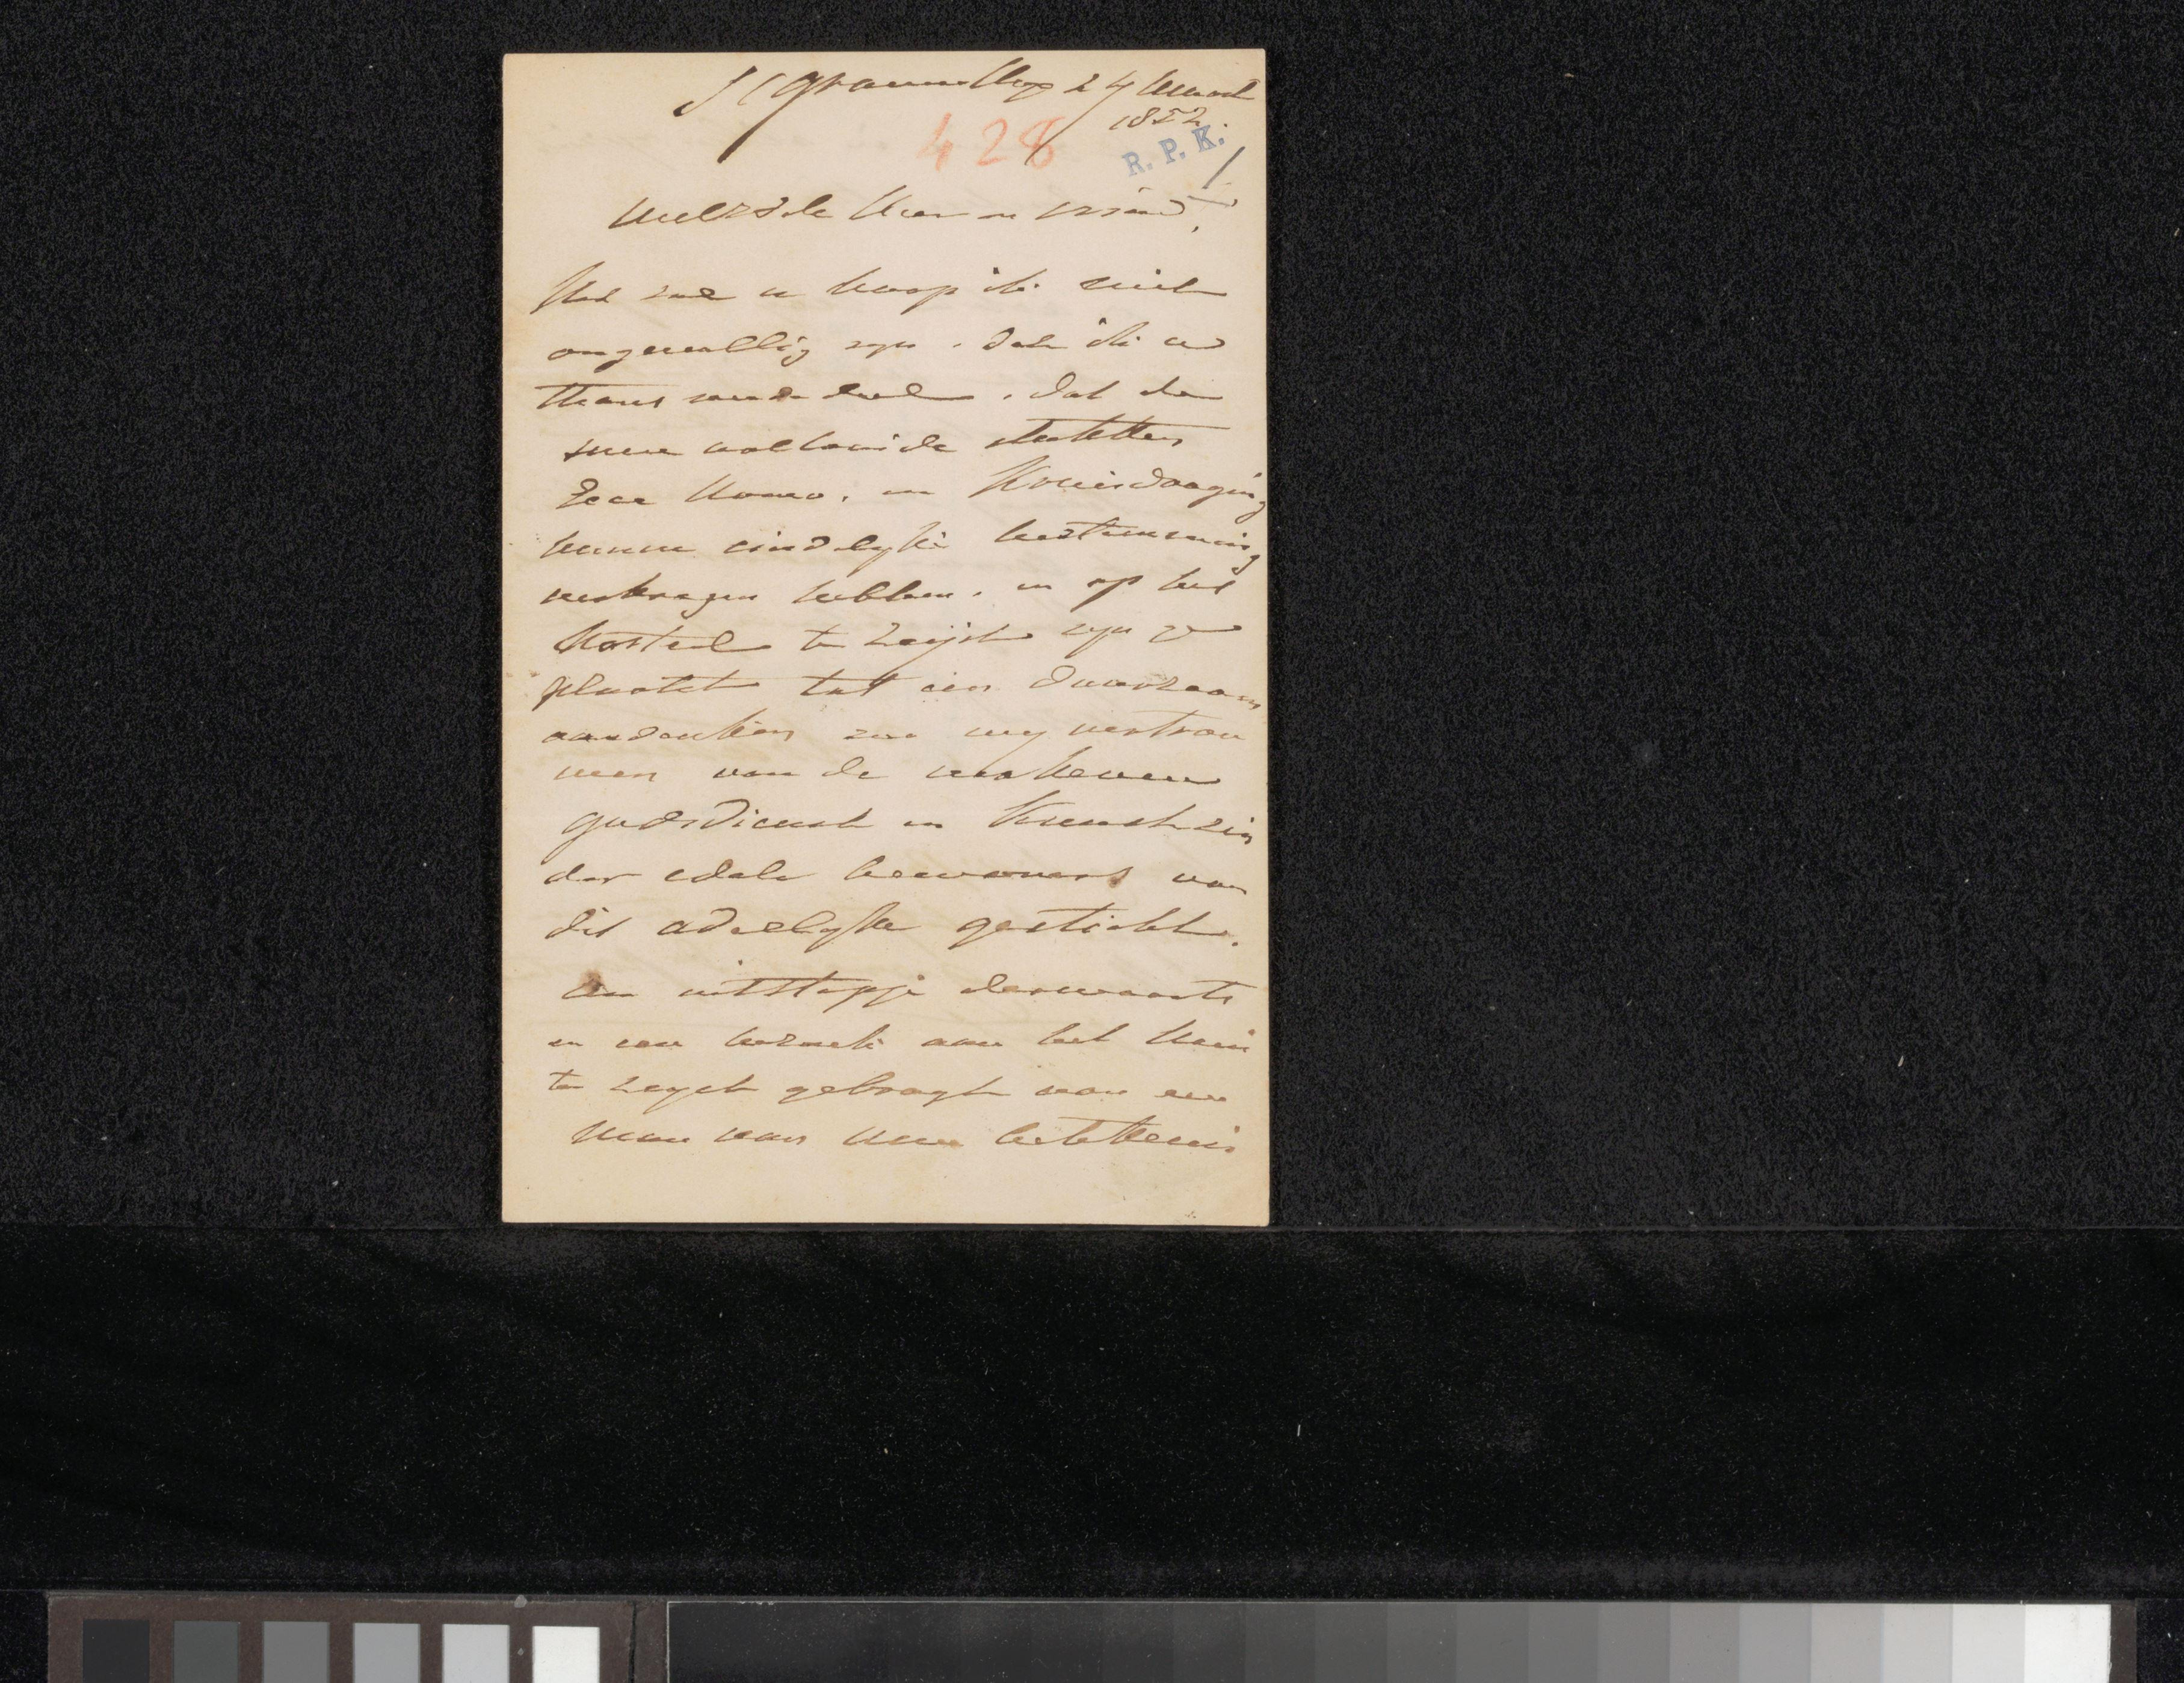 s'Gravenhage 24 Maart
1852.
428
R. P. K.
1
Waarde Heer en vriend,
Het zal u hoop ik niet
ongevallig zyn. dat ik u
thans mededeel. dat de
twee voltooide
Ecce Homo. en Kruisdraging
hunne eindelyke bestemming
verkregen hebben. en op het
Kasteel te Zeijst zyn ge
plaatst tot een duurzaam
aandenken zoo wy vertrou
wen van de
godsdienst en Kunstzin
der edele bewoners van
dit adelyke gesticht.
Een uitstapje derwaarts
en een bezoek aan het Huis
te Zeyst gebragt van een
Man van Uwe betekenis